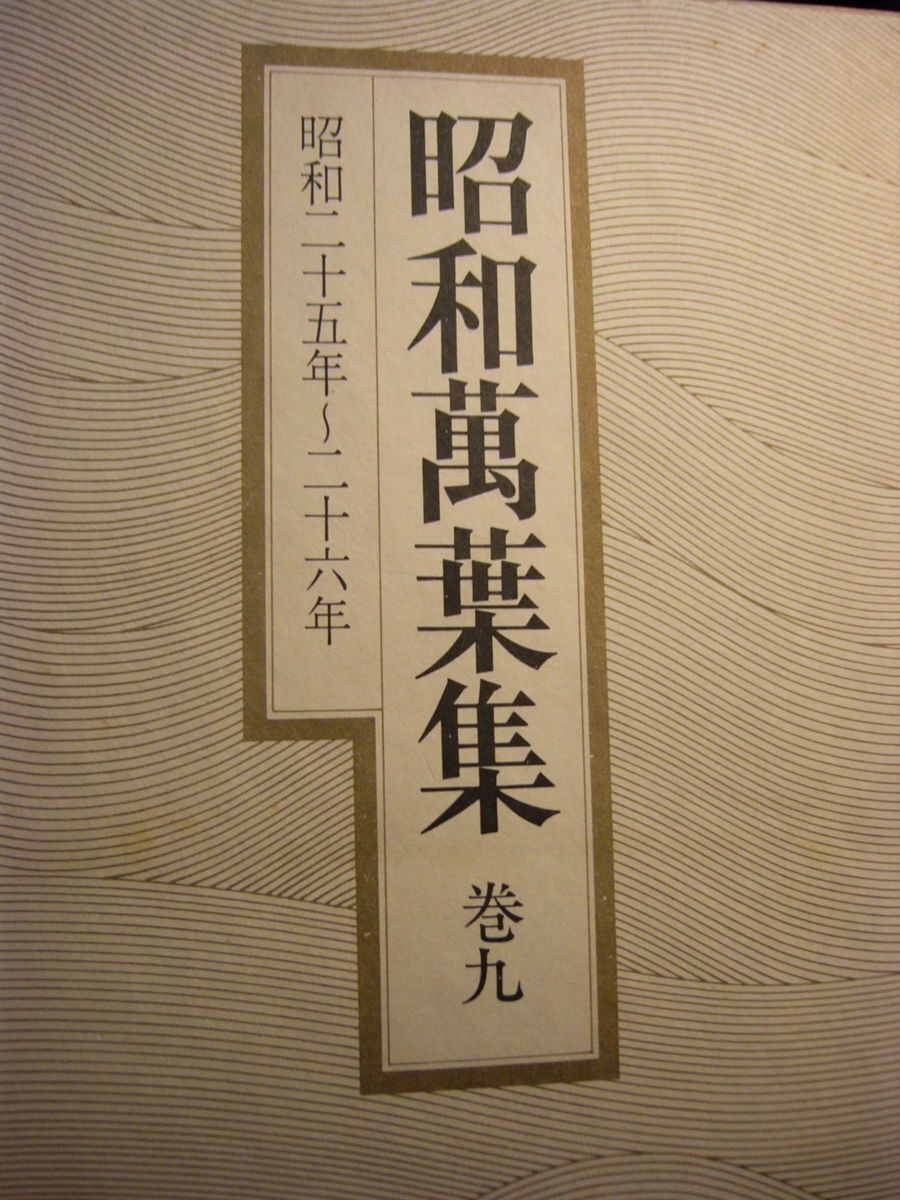 昭和萬葉集 巻九
昭和二十五年~二十六年